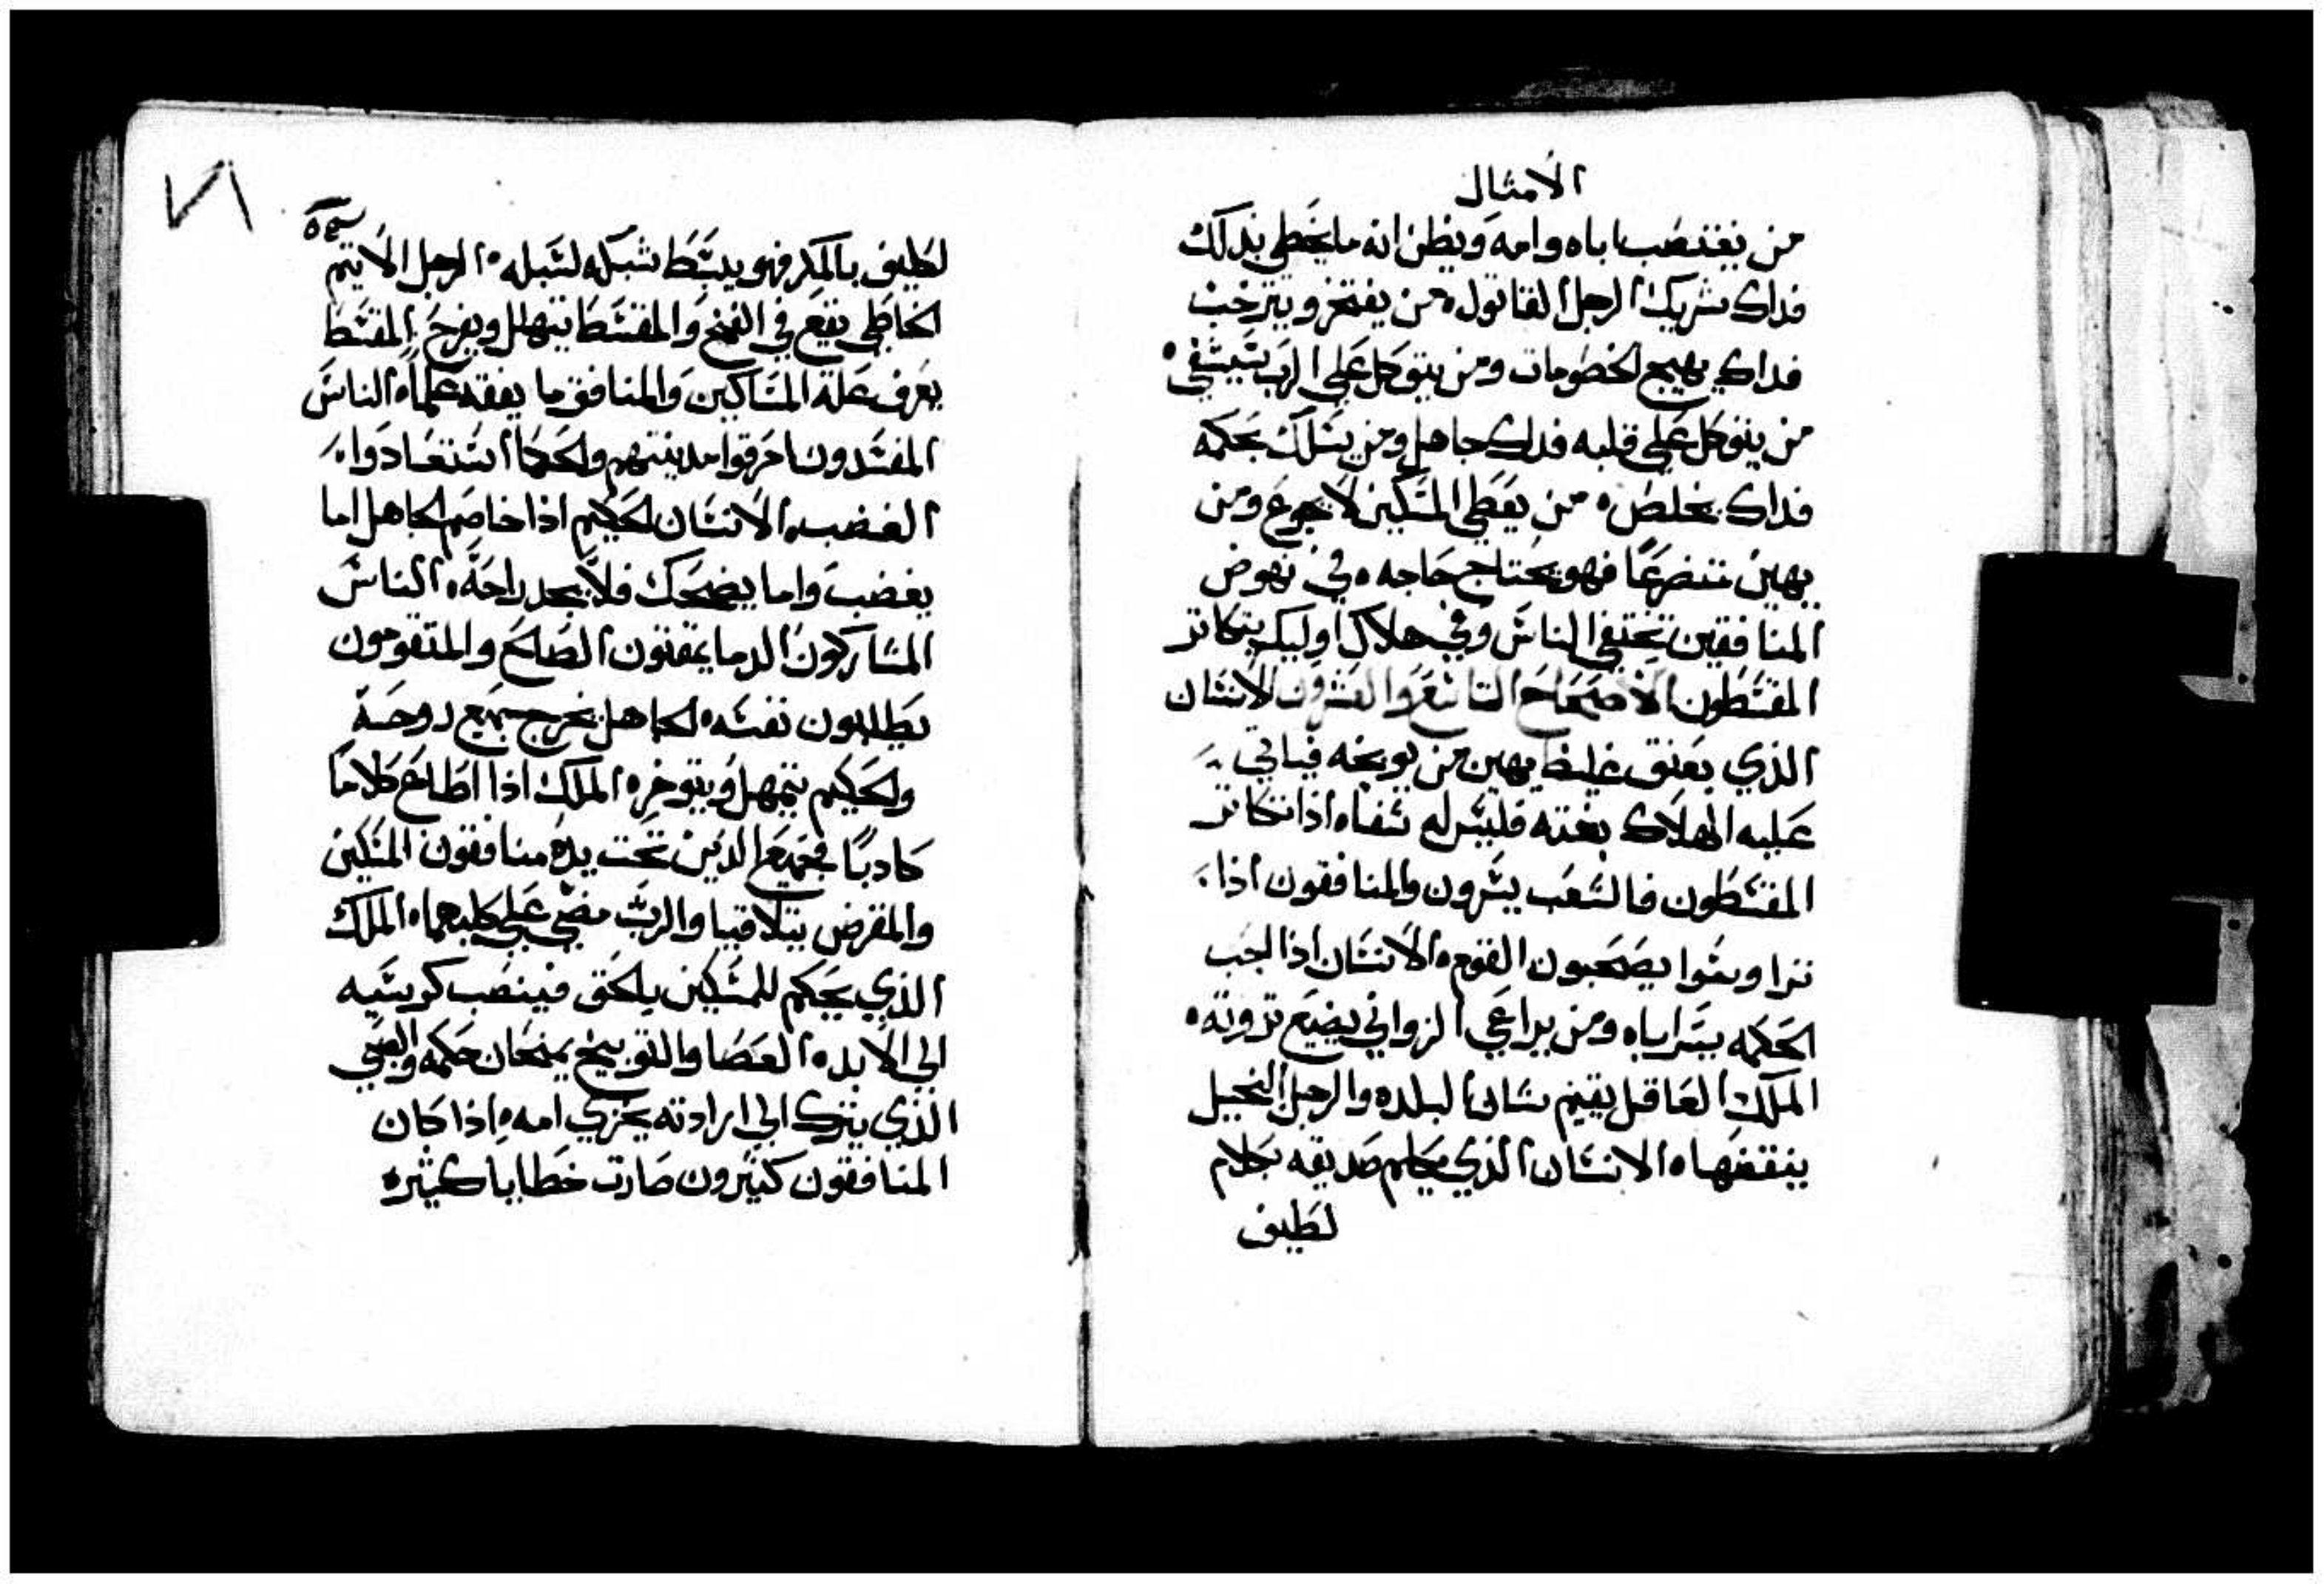 الأمثال
من يغتصب اباه وامه ويظن انه ما يخطي بذلك
فداك شريك الرجل القاتول ٥ من يفتخر ويترخب
فداك يهيج الخطومات ومن يتوكل علي الرب يستشفي ٥
من يتوكل علي قلبه فداك جاهل ومن يسلك بحكمه
فداك يخلص ٥ من يعطي المسكين لا يجوع ومن
يهين متضرعًا فهو يحتاج حاجه ٥ في نهوض
المنافقين تختفي الناس وفي هلاك اوليك يتكاتر
المقسطون الاصحاح التاسع والعشرون الانسان
الذي بعنق غليظ يهين من يوبخه فياتي
عليه الهلاك بغته فليس له شفاه اذا تكاتر
المقسطون فالشعب يسرون والمنافقون اذا
تراوسوا يصحبون القوم ٥ الانسان اذا احب
الحكمه يسر اباه ومن يراعي الزواني يضيع تروته ٥
الملك العاقل يقيم شان البلده والرجل البخيل
ينقضها ٥ الانسان الذي يكلم صديقه بكلام
لطيف
٧٨
لطيف بالمكر فهو يبسط شبكه لسبله ٥ الرجل الاتيم
الخاطي يقع في الفخ والمقسط يتهلل ويفرح المقسط
يعرف علة المساكين والمنافق ما يفقد علمًا ٥ الناس
المفسدون احرقوا مدينتهم والحكما استعادوا
الغضب ٥ الانسان الحكيم اذا خاصم الجاهل اما
يغضب واما يضحك فلا يجد راحة ٥ الناس
المشاركون الدما يمقتون الصالح والمتقومون
يطلبون نفسه ٥ الجاهل يخرج جميع روحه
والحكيم يتمهل ويتوخر ٥ الملك اذا اطاع كلامًا
كادبًا فجميع الذين تحت يده منافقون المسكين
والمقرض يتلاقيا والرب مضي علي كليهما ٥ الملك
الذي يحكم للمسكين بالحق فينصب كرسيه
الي الابد ٥ العصا والتوبيخ يمنحان حكمه والصبي
الذي يترك الي ارادته يخزي امه ٥ اذا كان
المنافقون كتيرون صارت خطايا كثيره